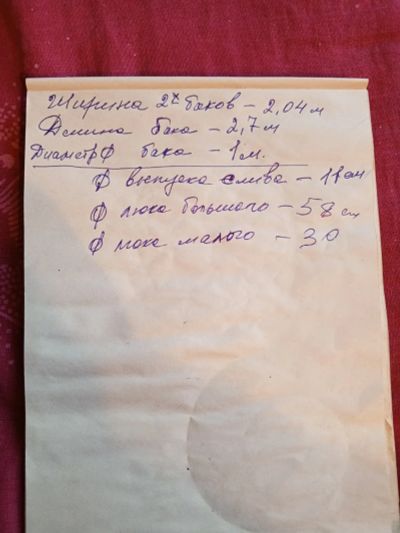 Ширина 2х баков - 2,04 м
Длинна бака - 2,7 м
Диаметр ф бака - 1 м.
ф выпуска слива - 11 см
ф люка большого - 58 см
ф люка малого - 30